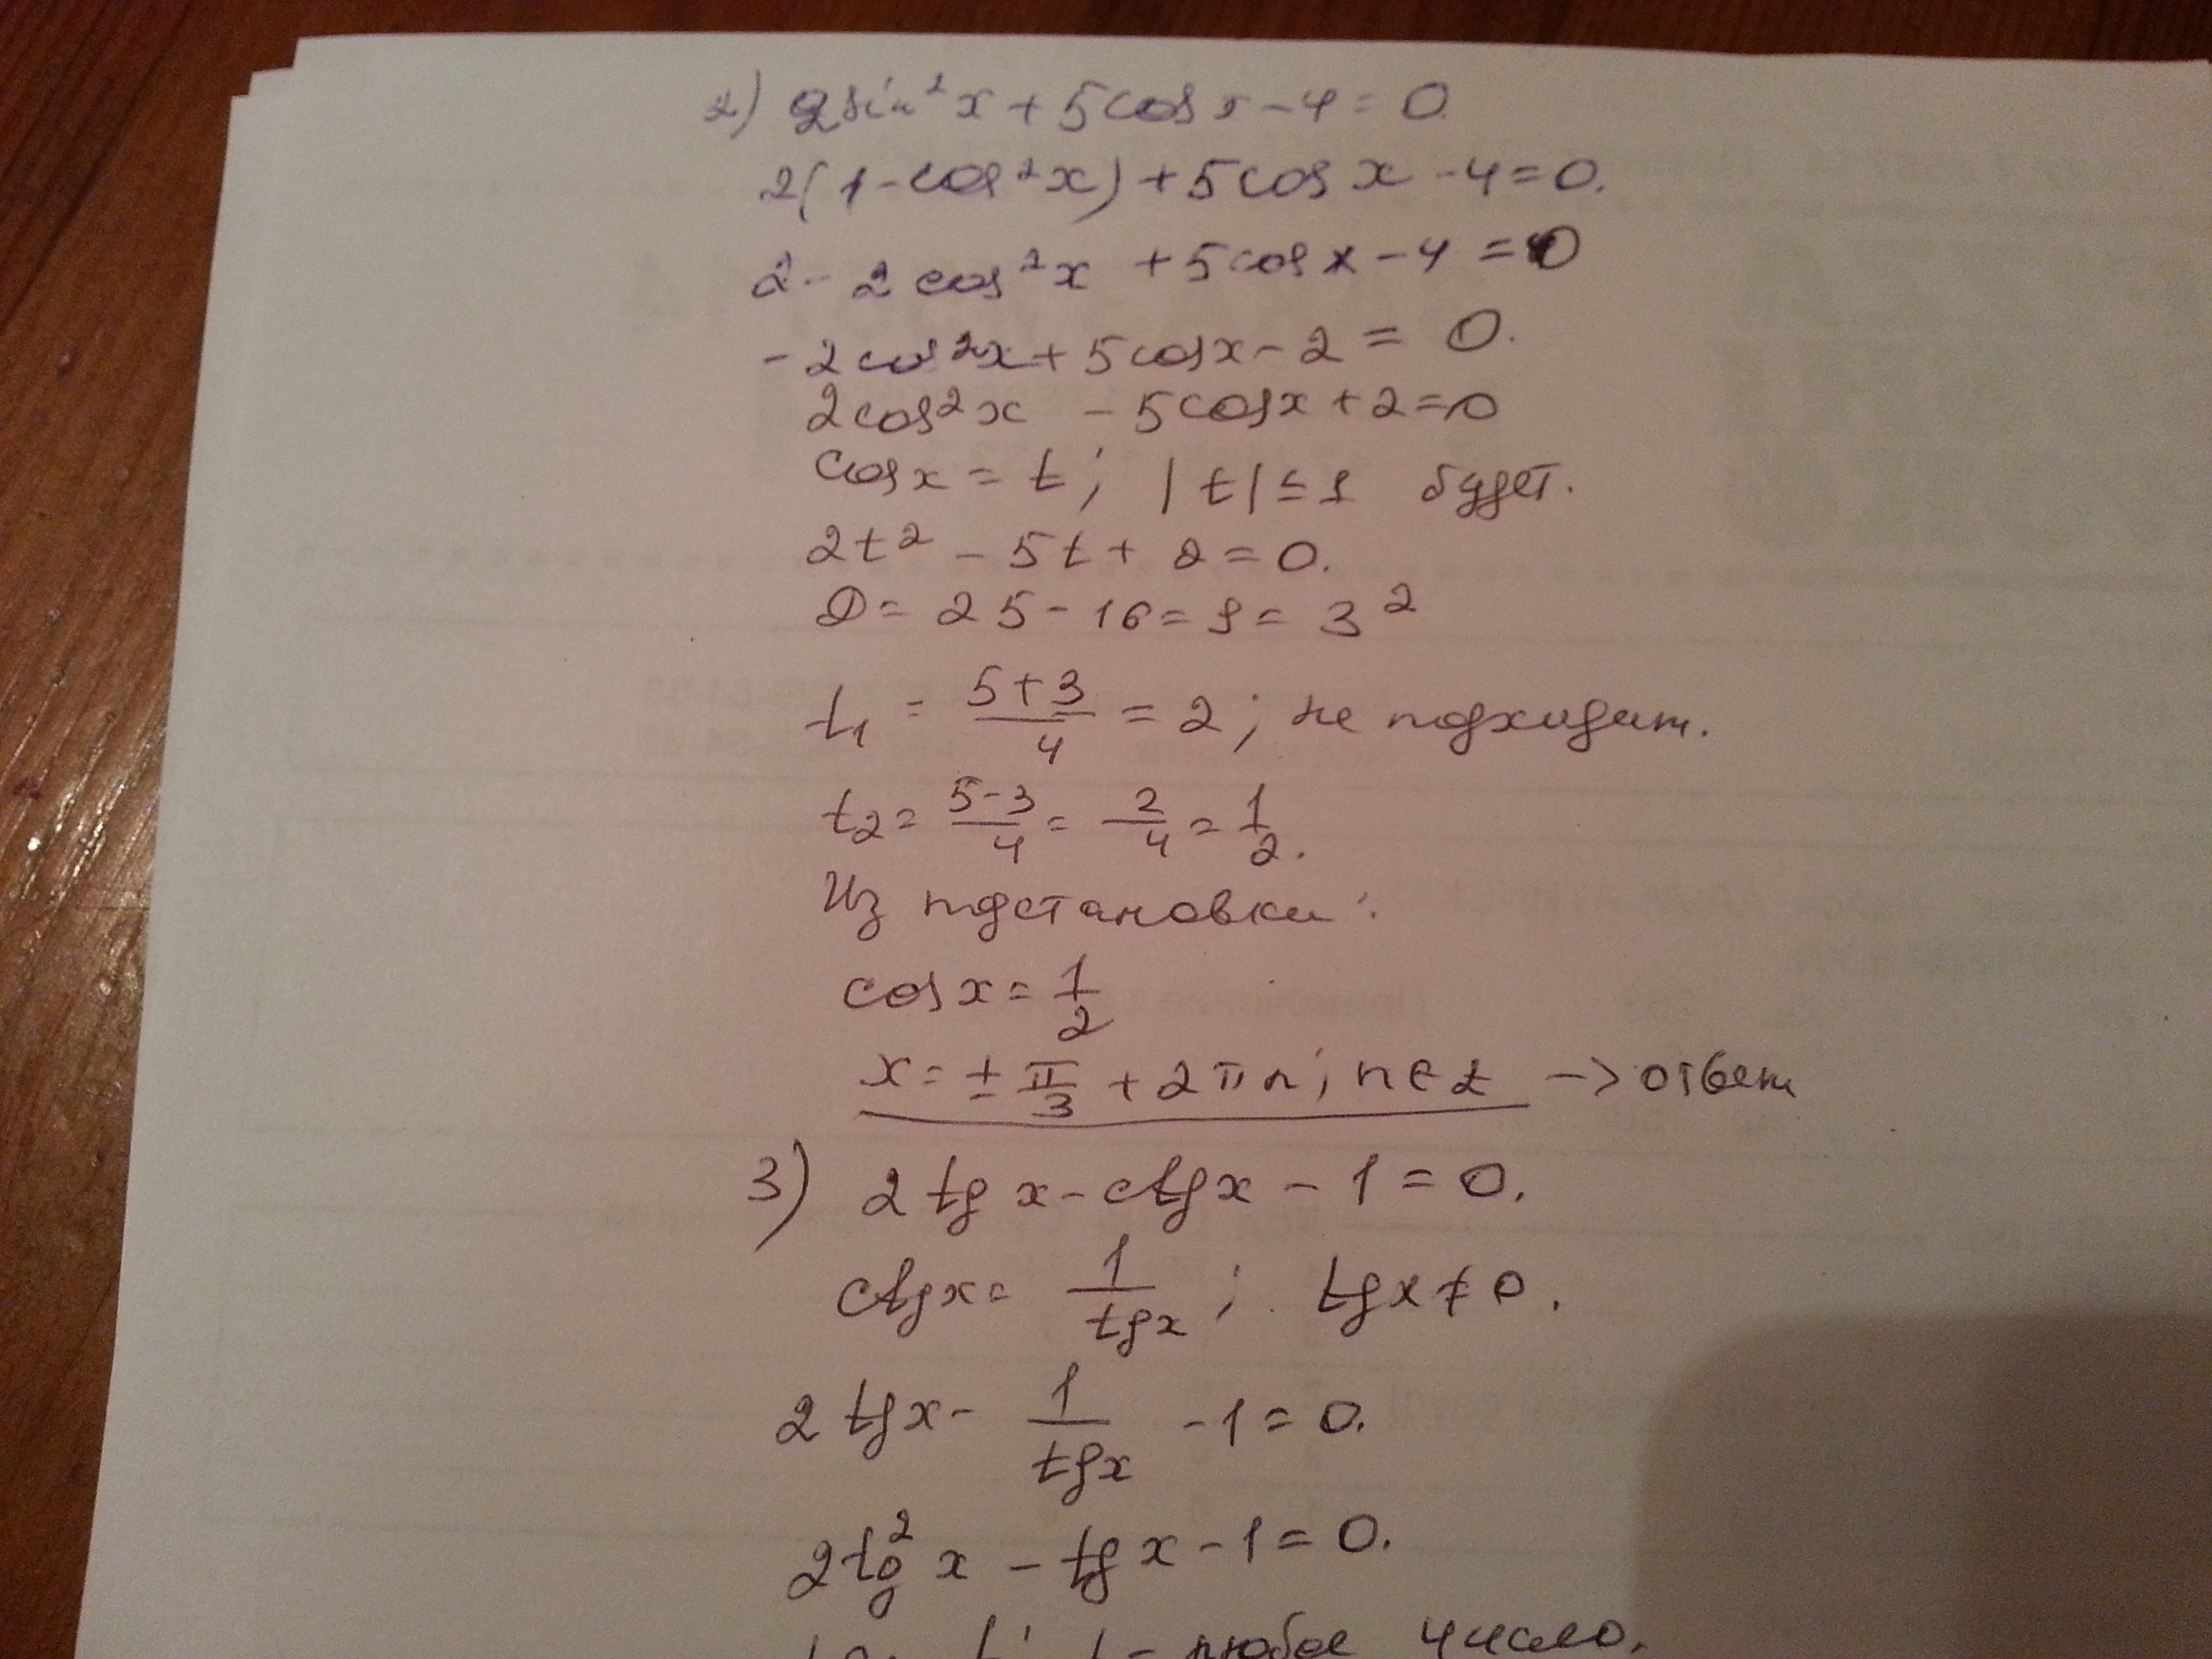 2) 2sin²x + 5cosx - 4 = 0.
2(1 - cos²x) + 5cosx - 4 = 0.
2 - 2cos²x + 5cosx - 4 = 0
-2cos²x + 5cosx - 2 = 0.
2cos²x - 5cosx + 2 = 0
cosx = t; |t| ≤ 1 будет.
2t² - 5t + 2 = 0.
D = 25 - 16 = 9 = 3²
t₁ = (5+3)/4 = 2; не подходит.
t₂ = (5-3)/4 = 2/4 = 1/2.
Из подстановки:
cosx = 1/2
x = ± π/3 + 2πn; n ∈ Z -> ответ
3) 2tgx - ctgx - 1 = 0.
ctgx = 1/tgx; tgx ≠ 0.
2tgx - 1/tgx - 1 = 0.
2tg²x - tgx - 1 = 0.
любое число.